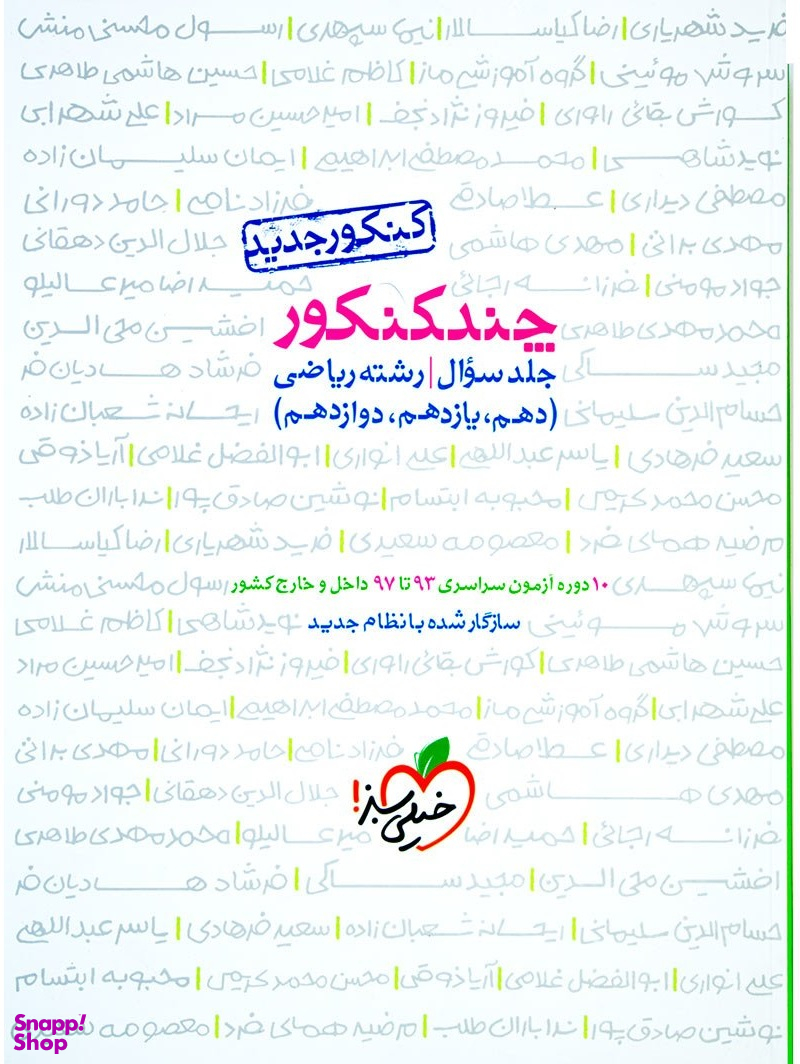 فرید شهریاری | رضا کیاسالار | نیما سپهری | رسول محسنی منش
سروش موئینی | گروه آموزشی ماز | کاظم غلامی | حسین هاشمی طاهری
کورش بقائی راوری | فیروز نژادنجف | امیرحسین مراد | علی شهرابی
نوید شاهی | محمد مصطفی ابراهیم | ایمان سلیمان زاده
مصطفی دیداری | عطا صادقی فرزاد نامی | حامد دورانی
کنکور جدید
مهدی براتی | مهدی هاشمی جلال الدین دهقانی
جواد مومنی | فرزانه رجائی حمیدرضا میرعالیلو
چند کنکور
محمد مهدی طاهری افشین محی الدین
جلد سؤال | رشته ریاضی
مجید ساکی فرشاد هادیان فر
(دهم، یازدهم، دوازدهم)
حسام الدین سلیمانی ریحانه شعبان زاده
سعید فرهادی | یاسر عبداللهی | علی انواری | ابوالفضل غلامی | آریا ذوقی
محسن محمد کریمی | محبوبه ابتسام | نوشین صادق پور | ندا باران طلب
مرضیه همای فرد | معصومه سعیدی | فرید شهریاری | رضا کیاسالار
نیما سپهری رسول محسنی منش
۱۰ دوره آزمون سراسری ۹۳ تا ۹۷ داخل و خارج کشور
سروش موئینی نوید شاهی | کاظم غلامی
سازگار شده با نظام جدید
حسین هاشمی طاهری | کورش بقائی راوری | فیروز نژادنجف | امیرحسین مراد
علی شهرابی | گروه آموزشی ماز | محمد مصطفی ابراهیم | ایمان سلیمان زاده
مصطفی دیداری | عطا صادقی فرزاد نامی | حامد دورانی | مهدی براتی
مهدی هاشمی جلال الدین دهقانی | جواد مومنی
خیلی سبز!
فرزانه رجائی | حمیدرضا میرعالیلو | محمد مهدی طاهری
افشین محی الدین | مجید ساکی | فرشاد هادیان فر
حسام الدین سلیمانی | ریحانه شعبان زاده | سعید فرهادی | یاسر عبداللهی
علی انواری | ابوالفضل غلامی | آریا ذوقی | محسن محمد کریمی | محبوبه ابتسام
نوشین صادق پور | ندا باران طلب | مرضیه همای فرد | معصومه
Snapp!
Shop